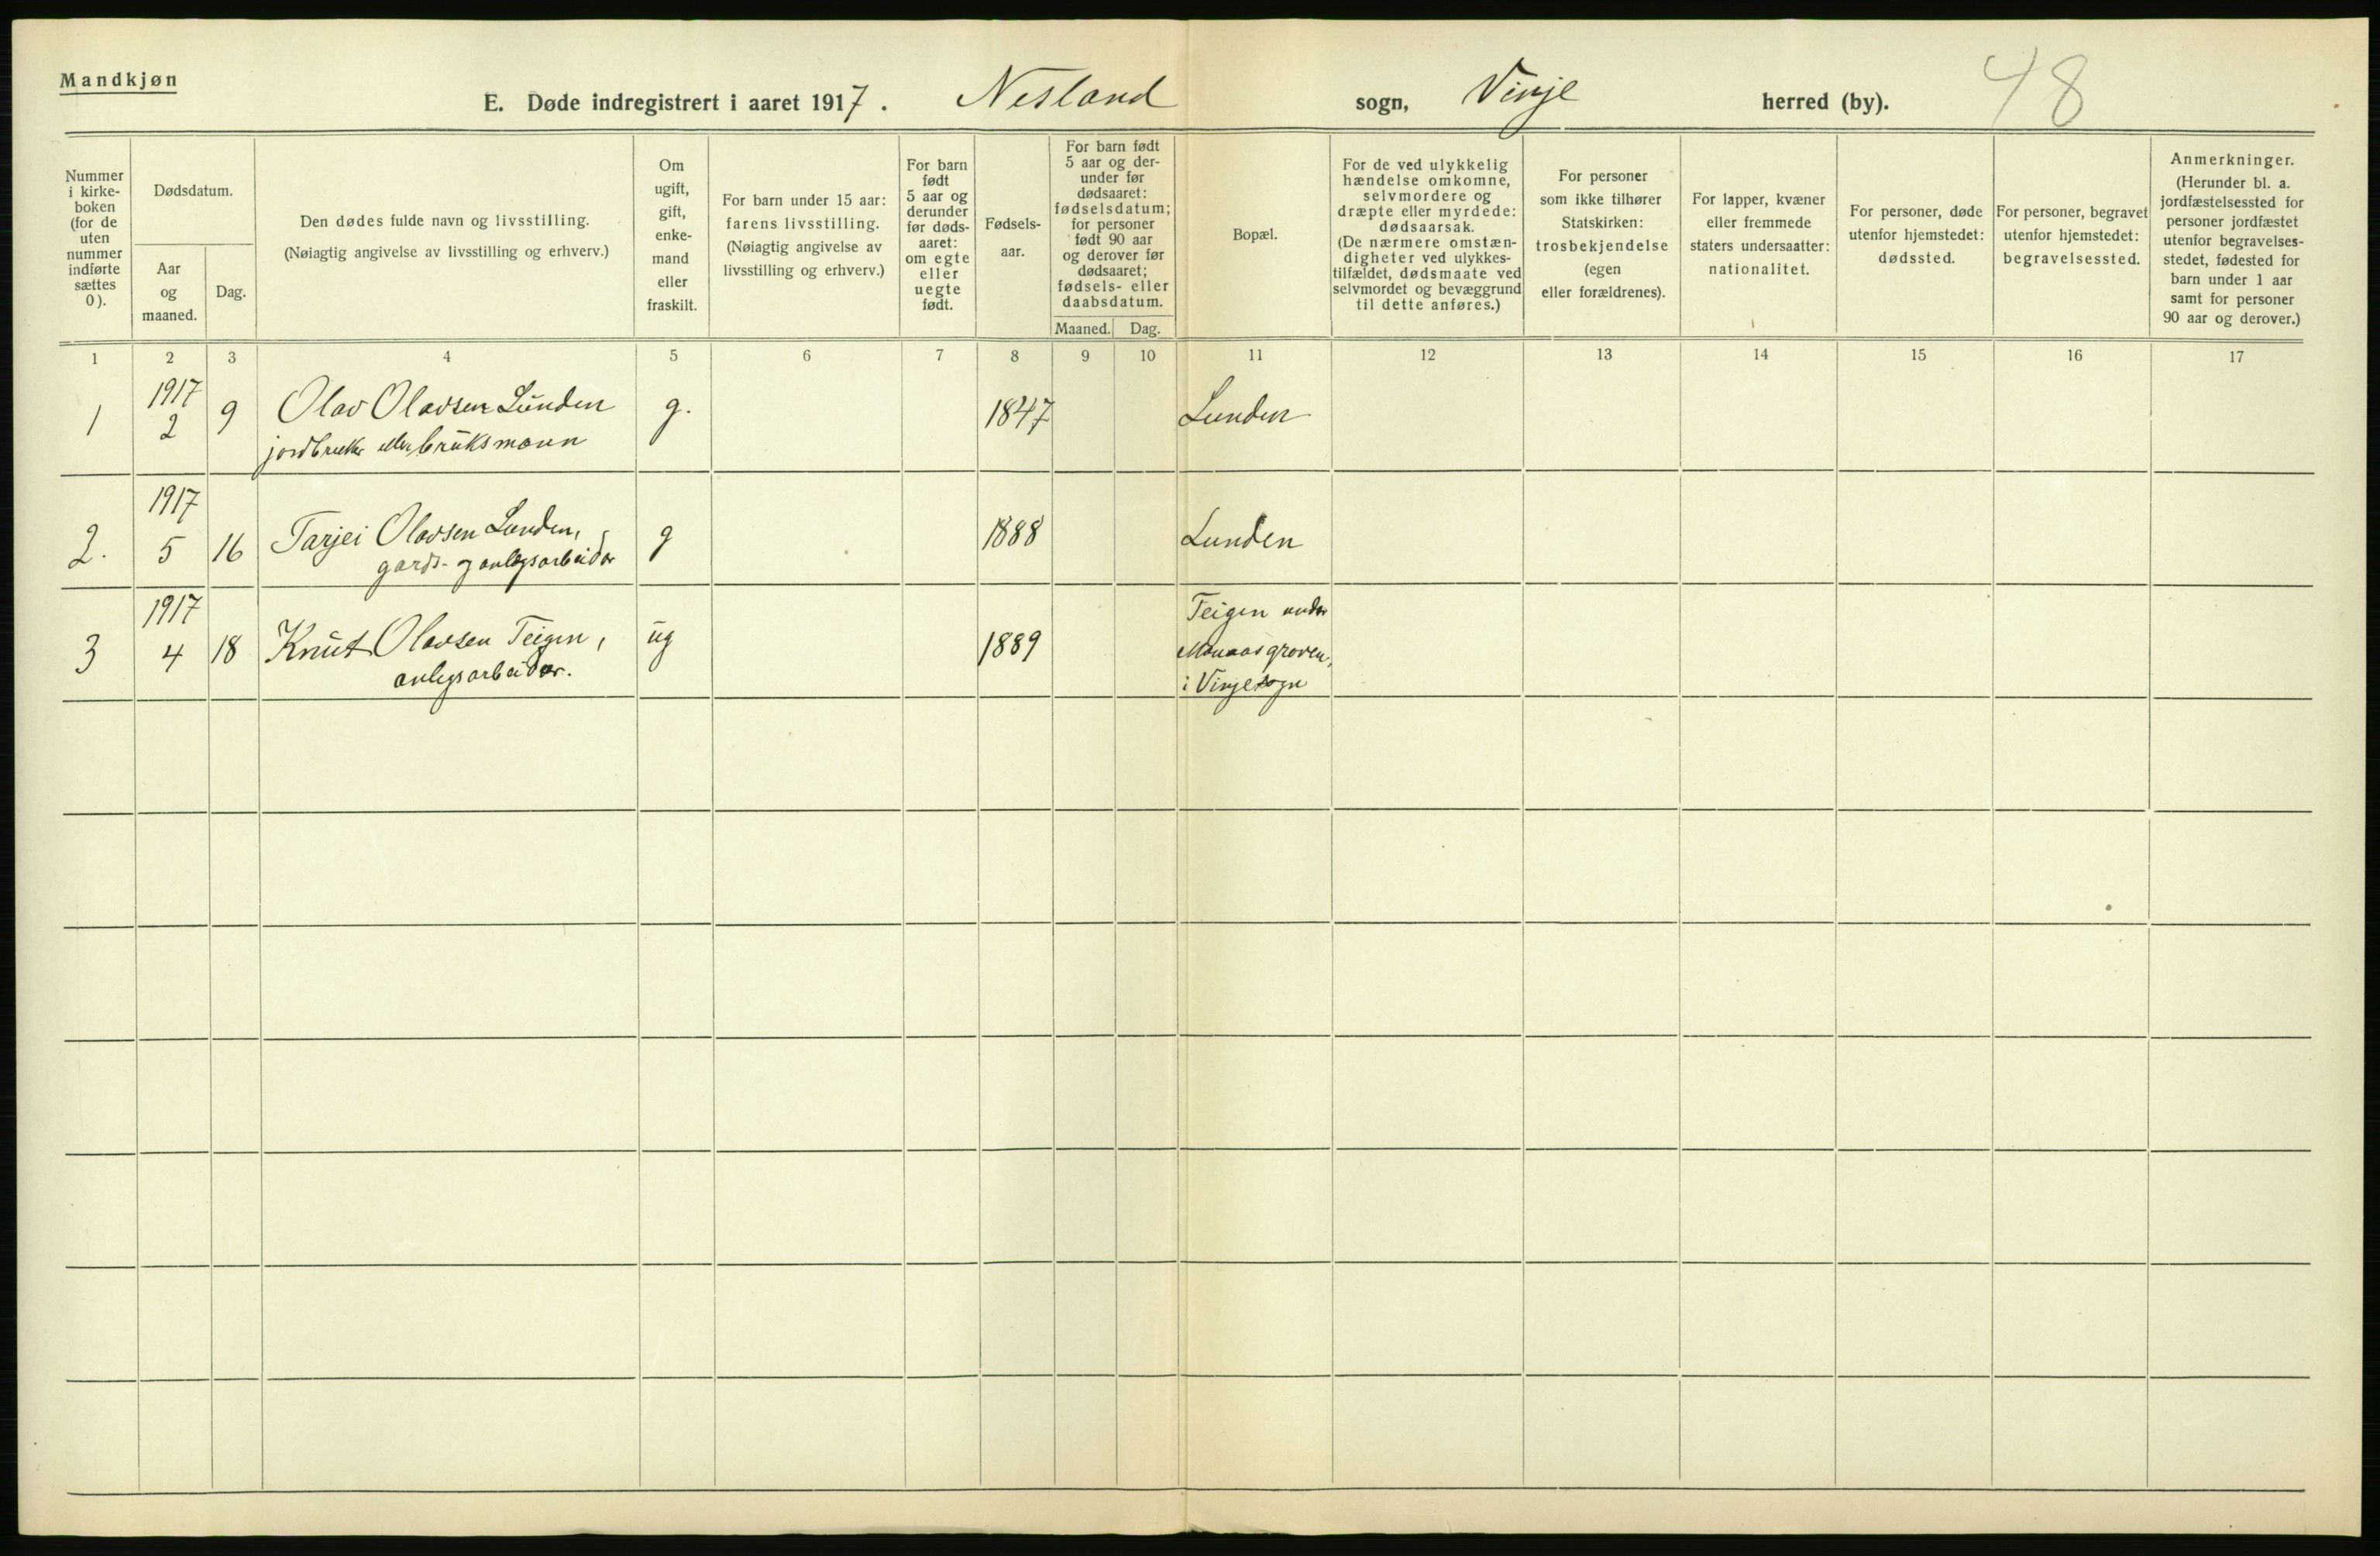 Mandkjøn
E. Døde indregistrert i aaret 1917. Nesland sogn, Vinje herred (by). 48
Nummer
i kirke-
boken
(for de
uten
nummer
indførte
sættes
0).
Dødsdatum.
Aar
og
maaned.
Dag.
Den dødes fulde navn og livsstilling.
(Nøiagtig angivelse av livsstilling og erhverv.)
Om
ugift,
gift,
enke-
mand
eller
fraskilt.
For barn under 15 aar:
farens livsstilling.
(Nøiagtig angivelse av
livsstilling og erhverv.)
For barn
født
5 aar og
derunder
før døds-
aaret:
om egte
eller
uegte
født.
Fødsels-
aar.
For barn født
5 aar og der-
under før
dødsaaret:
fødselsdatum;
for personer
født 90 aar
og derover før
dødsaaret;
fødsels- eller
daabsdatum.
Maaned. Dag.
Bopæl.
For de ved ulykkelig
hændelse omkomne,
selvmordere og
dræpte eller myrdede:
dødsaarsak.
(De nærmere omstæn-
digheter ved ulykkes-
tilfældet, dødsmaate ved
selvmordet og bevæggrund
til dette anføres.)
For personer
som ikke tilhører
Statskirken:
trosbekjendelse
(egen
eller forældrenes).
For lapper, kvæner
eller fremmede
staters undersaatter:
nationalitet.
For personer, døde
utenfor hjemstedet:
dødssted.
For personer, begravet
utenfor hjemstedet:
begravelsessted.
Anmerkninger.
(Herunder bl. a.
jordfæstelsessted for
personer jordfæstet
utenfor begravelses-
stedet, fødested for
barn under 1 aar
samt for personer
90 aar og derover.)
1 2 3 4 5 6 7 8 9 10 11 12 13 14 15 16 17
1917
1 2 9 Olav Olavsen Lunden g. 1847 Lunden
bruksmann
1917
2. 5 16 Tarjei Olavsen Lunden, g 1888 Lunden
gards- og anlegsarbeidar
1917 Teigen under
3 4 18 Knut Olavsen Teigen, ug 1889
anlegsarbeidar. i Vinje sogn